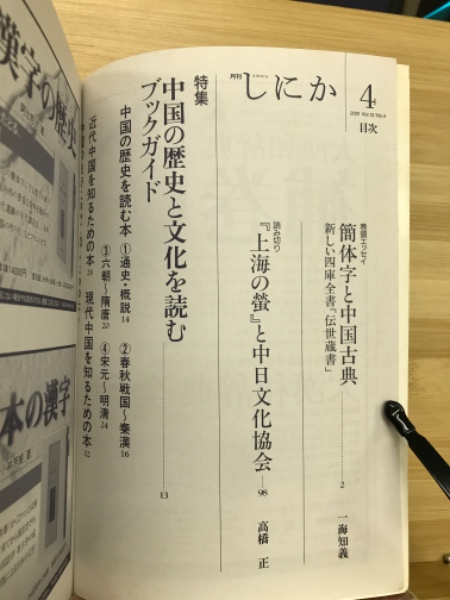 月刊
しにか
4
目次
巻頭エッセイ
簡体字と中国古典
新しい四庫全書「伝世蔵書」
2
一海知義
読み切り
『上海の螢』と中日文化協会
98
高橋 正
特集
中国の歴史と文化を読む
ブックガイド
13
中国の歴史を読む本
①通史・概説 14
②春秋戦国〜秦漢 16
③六朝〜隋唐 20
④宋元〜明清 24
近代中国を知るための本 28
現代中国を知るための本 32
漢字の歴史
本の漢字